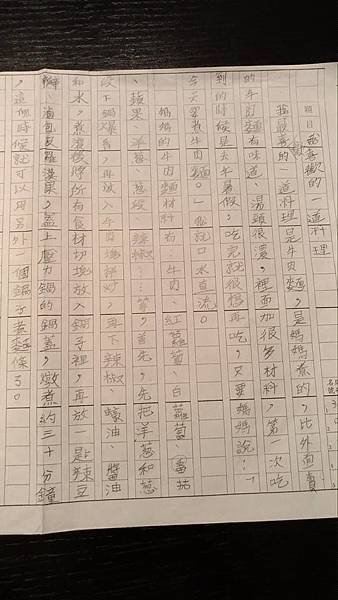 題目 我喜歡的一道料理
我最喜歡的一道料理是牛肉麵，是媽媽煮的，比外面賣
的牛肉麵有味道、湯頭很濃，裡面加很多材料，第一次吃
到的時候是去年暑假，吃完就很想再吃，只要媽媽說：「
今天要煮牛肉麵。」我就口水直流。
媽媽的牛肉麵材料有：牛肉、紅蘿蔔、白蘿蔔、番茄
、蘋果、洋蔥、蔥段、辣椒…等，首先，先把洋蔥和蔥
段下鍋爆香，再放入牛肉塊拌炒，再下辣椒、蠔油、醬油
和水，煮滾後將所有食材切塊放入鍋子裡，再放一點辣豆
瓣醬、滷包及羅漢果，蓋上壓力鍋的鍋蓋，燉煮約三十分鐘
，這個時候就可以用另外一個鍋子煮麵條了。